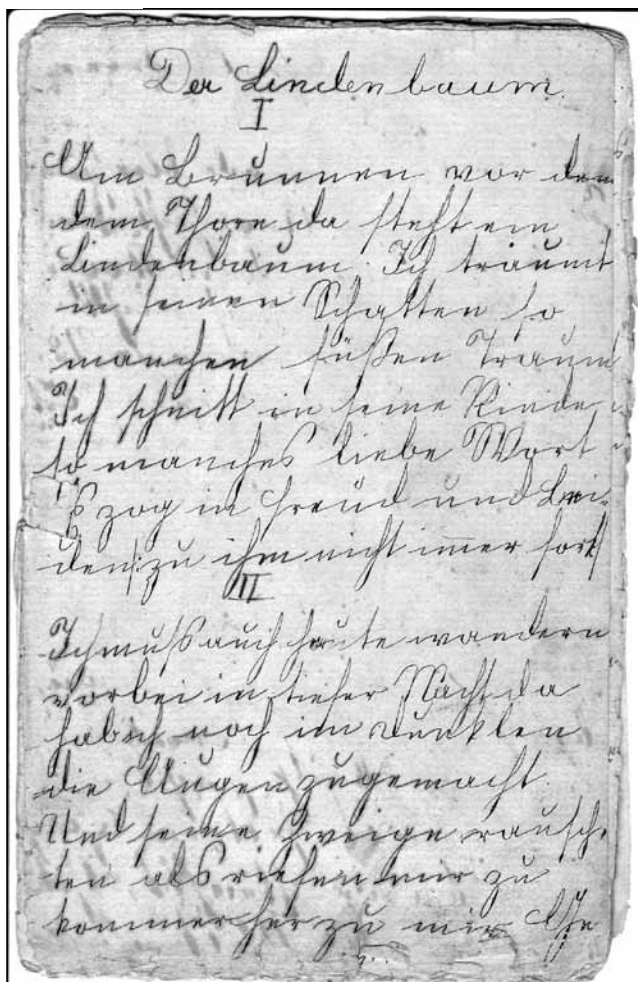 Der Lindenbaum
I
Am Brunnen vor dem
dem Thore da steht ein
Lindenbaum. Ich träumt
in seinen Schatten so
manchen süßen Traum
Ich schnitt in seine Rinde
so manches liebe Wort
's zog in Freud und Lei-
den |: zu ihm nicht immer fort :|
II
Ich muß auch heute wandern
vorbei in tiefer Nacht da
hab ich noch im Dunklen
die Augen zugemacht.
Und seine Zweige rausch-
ten als riefen mir zu
komm er her zu mir